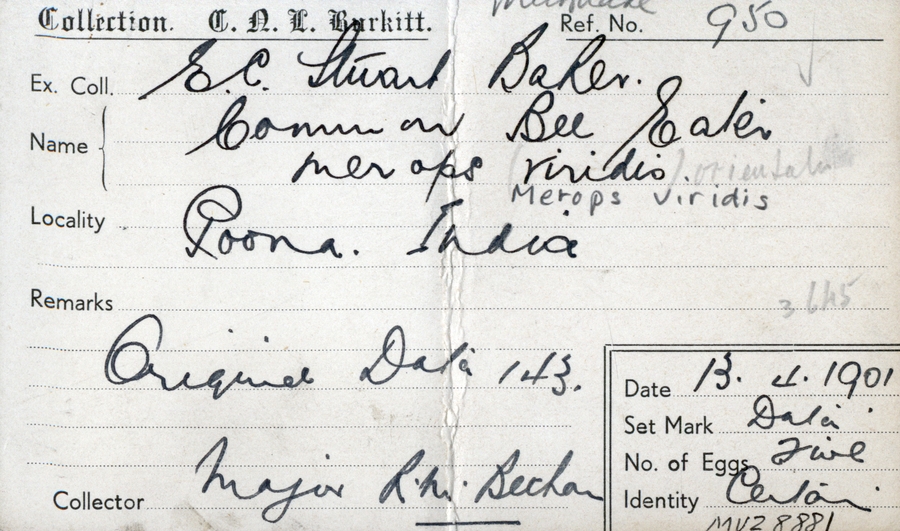 Collection. C. N. L. Burkitt. Ref. No. 950
Ex. Coll. E.C. Stuart Baker.
Name Common Bee Eater
merops viridis. orientalis
Merops viridis
Locality Poona. India
Remarks
3
Original Data 143.
Date 13. 4. 1901
Set Mark Data
No. of Eggs Five
Identity Certain
Collector Major R.M. Becham
MVZ 8881